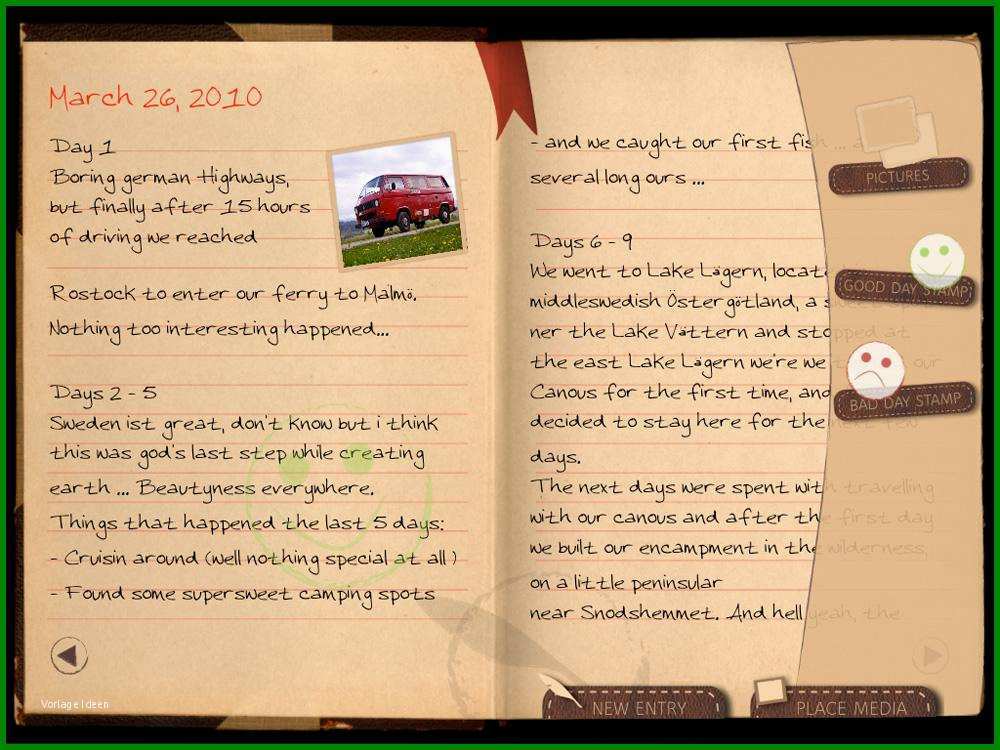 March 26, 2010
Day 1
Boring german Highways,
but finally after 15 hours
of driving we reached
Rostock to enter our ferry to Malmö.
Nothing too interesting happened...
Days 2 - 5
Sweden ist great, don't know but i think
this was god's last step while creating
earth ... Beautyness everywhere.
Things that happened the last 5 days:
- Cruisin around (well nothing special at all )
- Found some supersweet camping spots
- and we caught our first fish ...
several long ours ...
Days 6 - 9
We went to Lake Lagern,
middleswedish Östergötland, a
ner the Lake Vättern and stopped at
the east Lake Lagern we're we our
Canous for the first time, and
decided to stay here for the next few
days.
The next days were spent with travelling
with our canous and after the first day
we built our encampment in the wilderness,
on a little peninsular
near Snodshemmet. And hell yeah, the
PICTURES
GOOD DAY STAMP
BAD DAY STAMP
NEW ENTRY
PLACE MEDIA
Vorlage Ideen